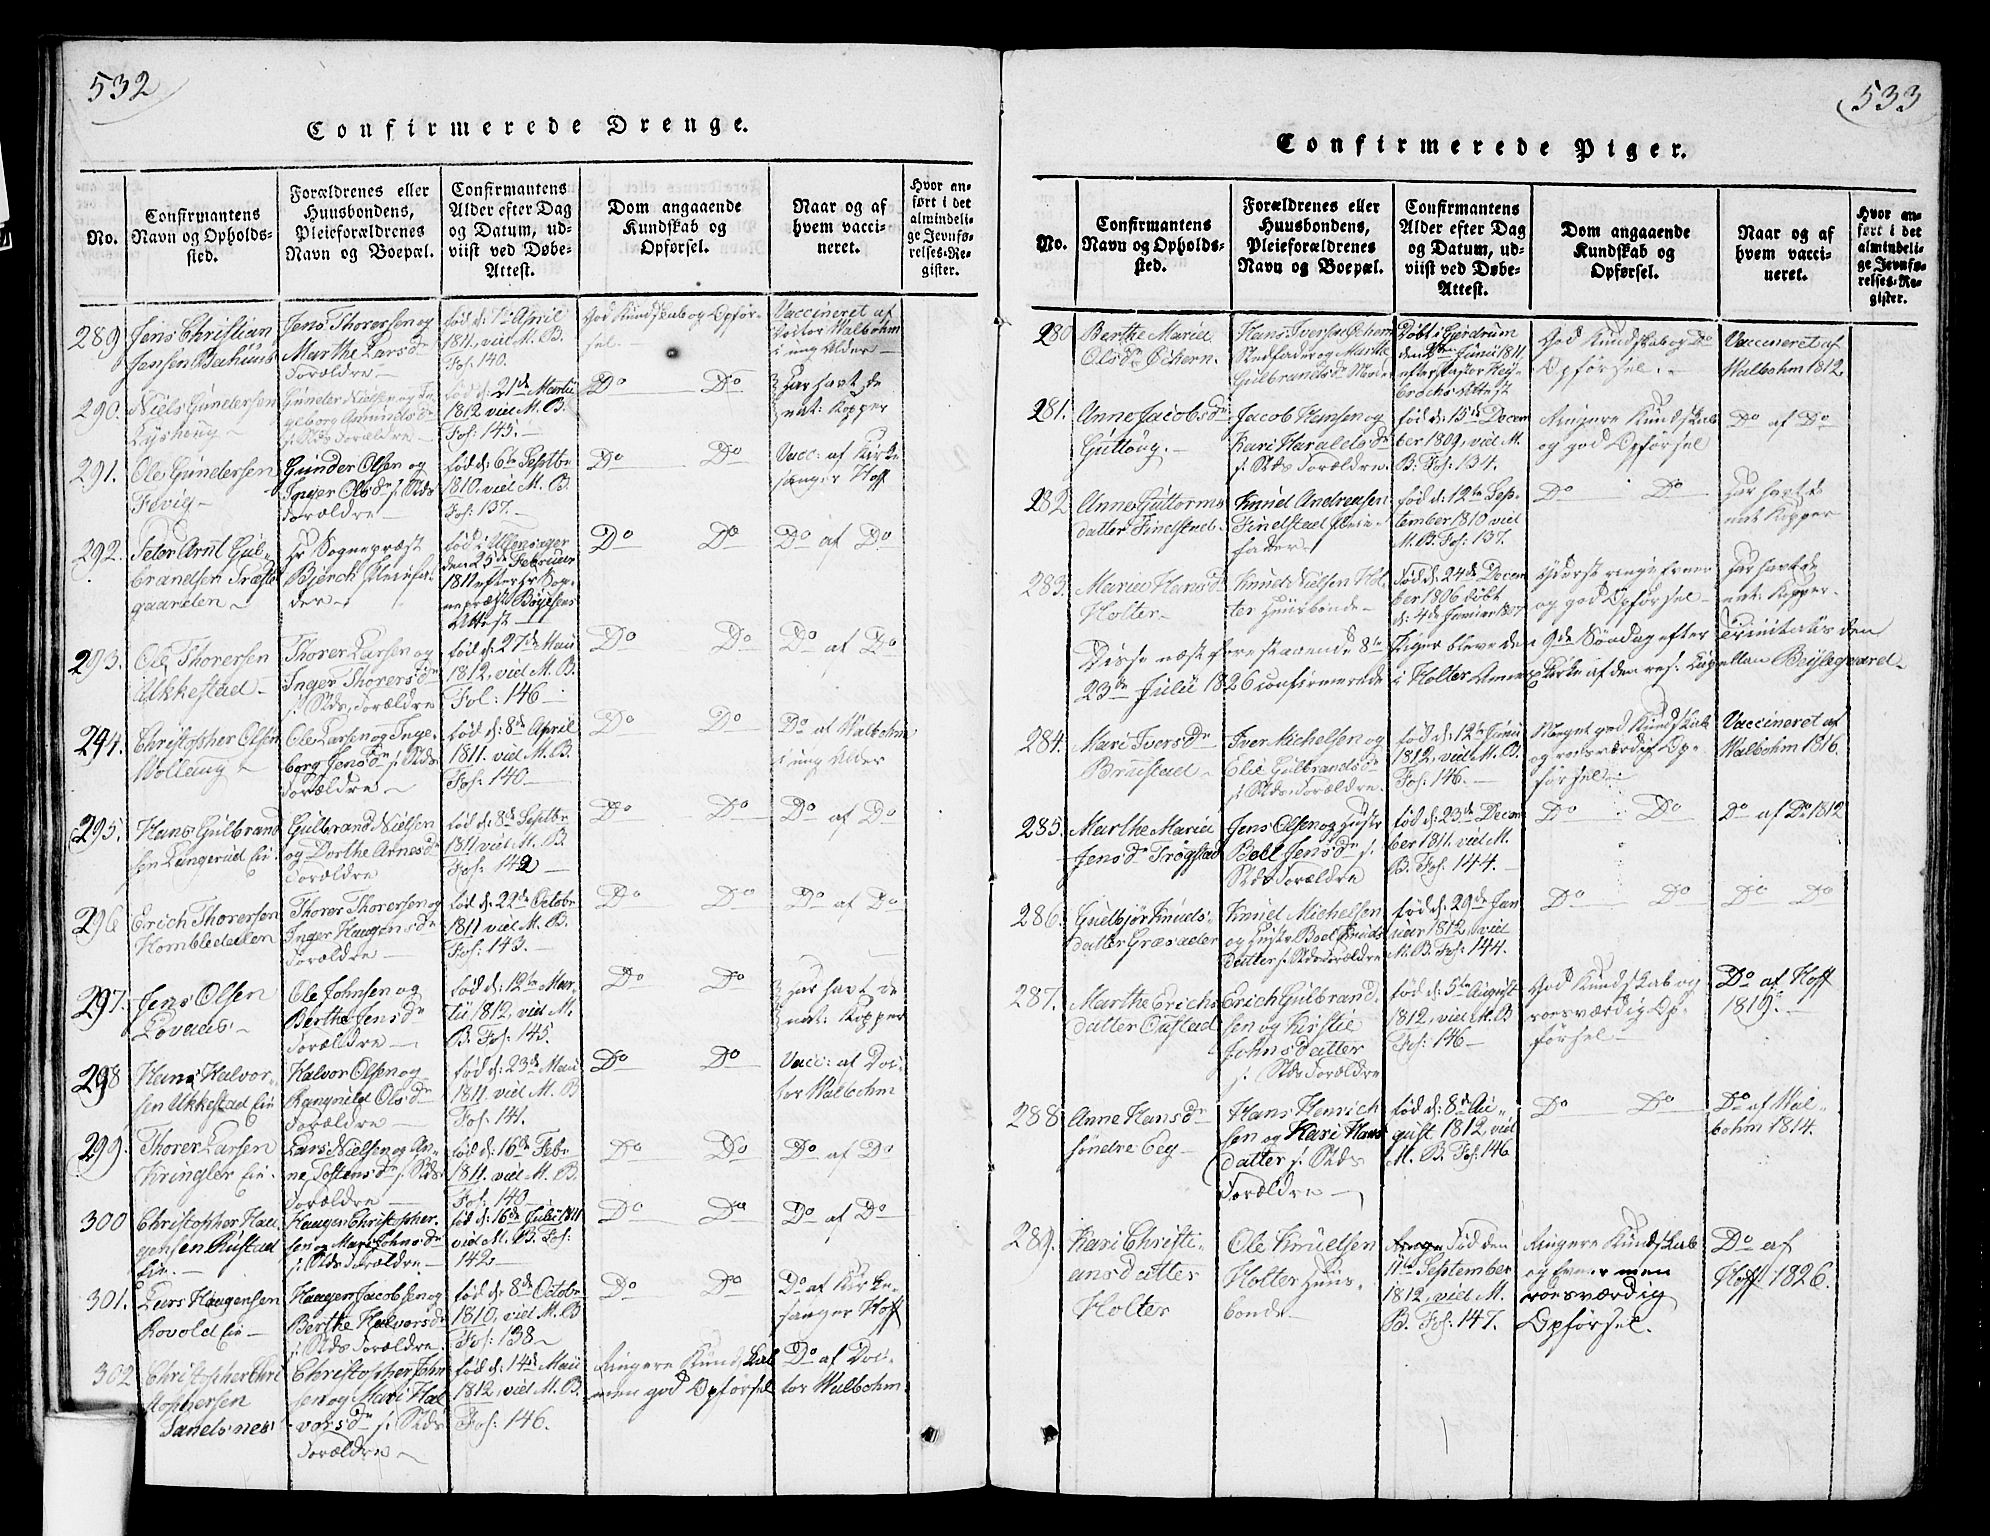 532
Confirmerede Drenge.
No.
Confirmantens
Navn og Opholds-
sted.
Forældrenes eller
Huusbondens,
Pleieforældrenes
Navn og Boepæl.
Confirmantens
Alder efter Dag
og Datum, ud-
viist ved Døbe-
Attest.
Dom angaaende
Kundskab og
Opførsel.
Naar og af
hvem vacci-
neret.
Hvor an-
ført i det
almindeli-
ge Jevnfø-
relses-Re-
gister.
289
Jens Christian
Jensen Bakhuus
Jens Thorersen og
Marthe Larsdr
Forældre
født d: 1te April
1811, vid M. B.
Fol: 140.
God Kundskab og Opfør-
sel.
Vaccineret af
Doctor Walbohm
i ung Alder
290.
Niels Gundersen
Lyshoug
Gunder Nielsen og In-
geborg Amundsdr
s: Stds Forældre
født d: 21de Martii
1812 vid M. B.
Fol: 145.
Do Do
Har havt de
nat: Kopper
291.
Ole Gundersen
Fevig
Gunder Olsen og
Inger Olsdr s: Stds
Forældre
født d: 6te Septbr
1810, vid M. B.
Fol: 137.
Do Do
Vacc: af Kirke
sanger Hoff
292.
Peter Arnt Gul-
brandsen Præste
gaarden
Hr Sognepræst
Bjerck Pleiefa-
der
født i Ullensager
den 25de Februar
1811 efter Hr Sog-
nepræst Böyesens
Attest
Do Do
Do af Do
293.
Ole Thorersen
Ukkestad
Thorer Larsen og
Inger Thorersdr
s: Stds, Forældre
født d: 27de Maii
1812, vid M. B.
Fol: 146
Do Do
Do af Do
294.
Christopher Olsen
Wollaug
Ole Larsen og Inge-
borg Jensdr s: Stds
Forældre
født d: 8de April
1811. vid M. B.
Fol: 140
Do Do
Do af Walbohm
i ung Alder
295.
Hans Gulbrand
sen Lungerud Eie
Gulbrand Nielsen
og Dorthe Arnesdr
Forældre
født d: 8de Septbr
1811 vid M. B.
Fol: 142
Do Do
Do af Do
296
Erich Thorersen
Hombledalen
Thorer Thorersen og
Inger Haagensdr
Forældre
født d: 22de Octobr
1811 vid M. B.
Fol: 143.
Do Do
Do af Do
297.
Jens Olsen
Lovaas
Ole Johnsen og
Berthe Jensdr
Forældre
født d: 12te Mar-
tii 1812, vid M.
B. Fol: 145.
Do Do
Har havt de
nat: Kopper
298
Hans Halvor-
sen Ukkestad Eie
Halvor Olsen og
Rangnild Olsdr
Forældre
født d: 23de Maii
1811. vid M. B
Fol: 141.
Do Do
Vacc: af Doc-
tor Walbohm
299.
Thorer Larsen
Kringler Eie.
Lars Nielsen og An-
ne Tostensdr s: Stds
Forældre
født d: 16de Febr
1811. vid M. B.
Fol: 140
Do Do
Do af Do
300
Christopher Haa
gensen Rustad
Eie.
Haagen Christopher-
sen og Mari Johnsdr
s: Stds Forældre
født d: 16de Julii 1811
vid M. B. Fol:
142
Do Do
Do af Do
301.
Lars Haagensen
Rovold Eie
Haagen Jacobsen og
Berthe Halvorsdr
s: Stds Forældre
født d: 8de Octobr
1810, vid M. B
Fol: 138
Do Do
Do af Kirke-
sanger Hoff
302
Christopher Chri
stophersen
Sandsnes
Christopher John
sen og Mari Hal
vorsdr s: Stds
Forældre
født d: 14de Maii
1812, vid M. B.
Fol: 146.
Ringere Kundskab
men god Opførsel
Do af Doc-
tor Walbohm
533
Confirmerede Piger.
No.
Confirmantens
Navn og Opholds-
sted.
Forældrenes eller
Huusbondens,
Pleieforældrenes
Navn og Boepæl.
Confirmantens
Alder efter Dag
og Datum, ud-
viist ved Døbe-
Attest.
Dom angaaende
Kundskab og
Opførsel.
Naar og af
hvem vacci-
neret.
Hvor an-
ført i det
almindeli-
ge Jevnfø-
relses-Re-
gister.
280
Berthe Maria
Olsdr Öchern.
Hans Iversen Öchern
Stedfader og Marthe
Gulbrandsdr Moder
Døbt i Gjerdrum
den Junii 1811,
efter Pastor Hey-
erdahls Attest
God Kundskab og Do
Opførsel.
Vaccineret af
Walbohm 1812.
281.
Anne Jacobsdr
Guttoug.
Jacob Hansen og
Kari Haraldsdr
s: Stds Forældre.
født d: 15de Decem
ber 1809, vid M.
B: Fol: 134.
Ringere Kundskab
og god Opførsel
Do af Do
282
Anne Guttorms
datter Findstad.
Knud Andreasen
Findstad Pleie-
fader
født d: 12te Sep-
tember 1810 vid
M. B. Fol: 137.
Do Do
Har havt de
nat: Kopper
283.
Maria Hansdr
Holter
Knud Nielsen Hol-
ter Huusbonde
Fød d: 24de Decem
ber 1806 døbt
d: 4de Januar 1807
Yderst ringe Evner
og god Opførsel
Har havt de
nat: Kopper.
Disse næst forestaaende 8te Piger bleve den 9de Søndag efter Trinitatis den
23de Julii 1826 confirmerede i Holter Annex Kirke af den res. Capellan Beisegaard
284.
Mari Iversdr
Braastad
Iver Michelsen og
Elie Gulbrandsdr
s: Stds Forældre.
født d: 12te Junii
1812, vid M. B.
Fol: 146.
Meget god Kundskab
og roesværdig Op-
førsel
Vaccineret af
Walbohm 1816.
285.
Marthe Maria
Jensdr Trøgstad
Jens Olsen og Hustr
Boel Jensdr s:
Stds Forældre
født d: 23de Decem
ber 1811. vid M.
B. Fol: 144.
Do Do
Do af Do 1812
286.
Gudbjör Knuds-
datter Græsader
Knud Michelsen
og Hustr Boel Knuds
datter s: Stds Forældre
født d: 29de Jan
uar 1812, vid
M. B. Fol: 144.
Do Do
Do Do
287.
Marthe Erichs
datter Oustad
Erich Gulbrand-
sen og Kirstie
Johnsdatter
s: Stds Forældre
født d: 5te August
1812, vid M. B
Fol: 146
God Kundskab og
roesværdig Op-
førsel
Do af Hoff
1819.
288
Anne Hansdr
søndre Eeg
Hans Henrich
sen og Kari Hans
datter s: Stds
Forældre
født d: 8de Au-
gust 1812, vid
M. B. Fol: 146
Do Do
Do af Wal-
bohm 1814.
289.
Kari Christi-
ansdatter
Holter
Ole Knudsen
Holter Huus-
bonde
Fød den
11te September
1812, vid M.
B. Fol: 147.
Ringere Kundskab
og Evner men
roesværdig
Opførsel.
Do af
Hoff 1826.